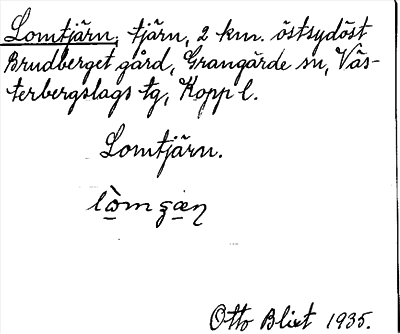 Lomtjärn, tjärn, 2 km. östsydöst
Brudberget gård, Grangärde sn,Väs-
terbergslags tg, Kopp l.
Lomtjärn.
Otto Blixt 1935.